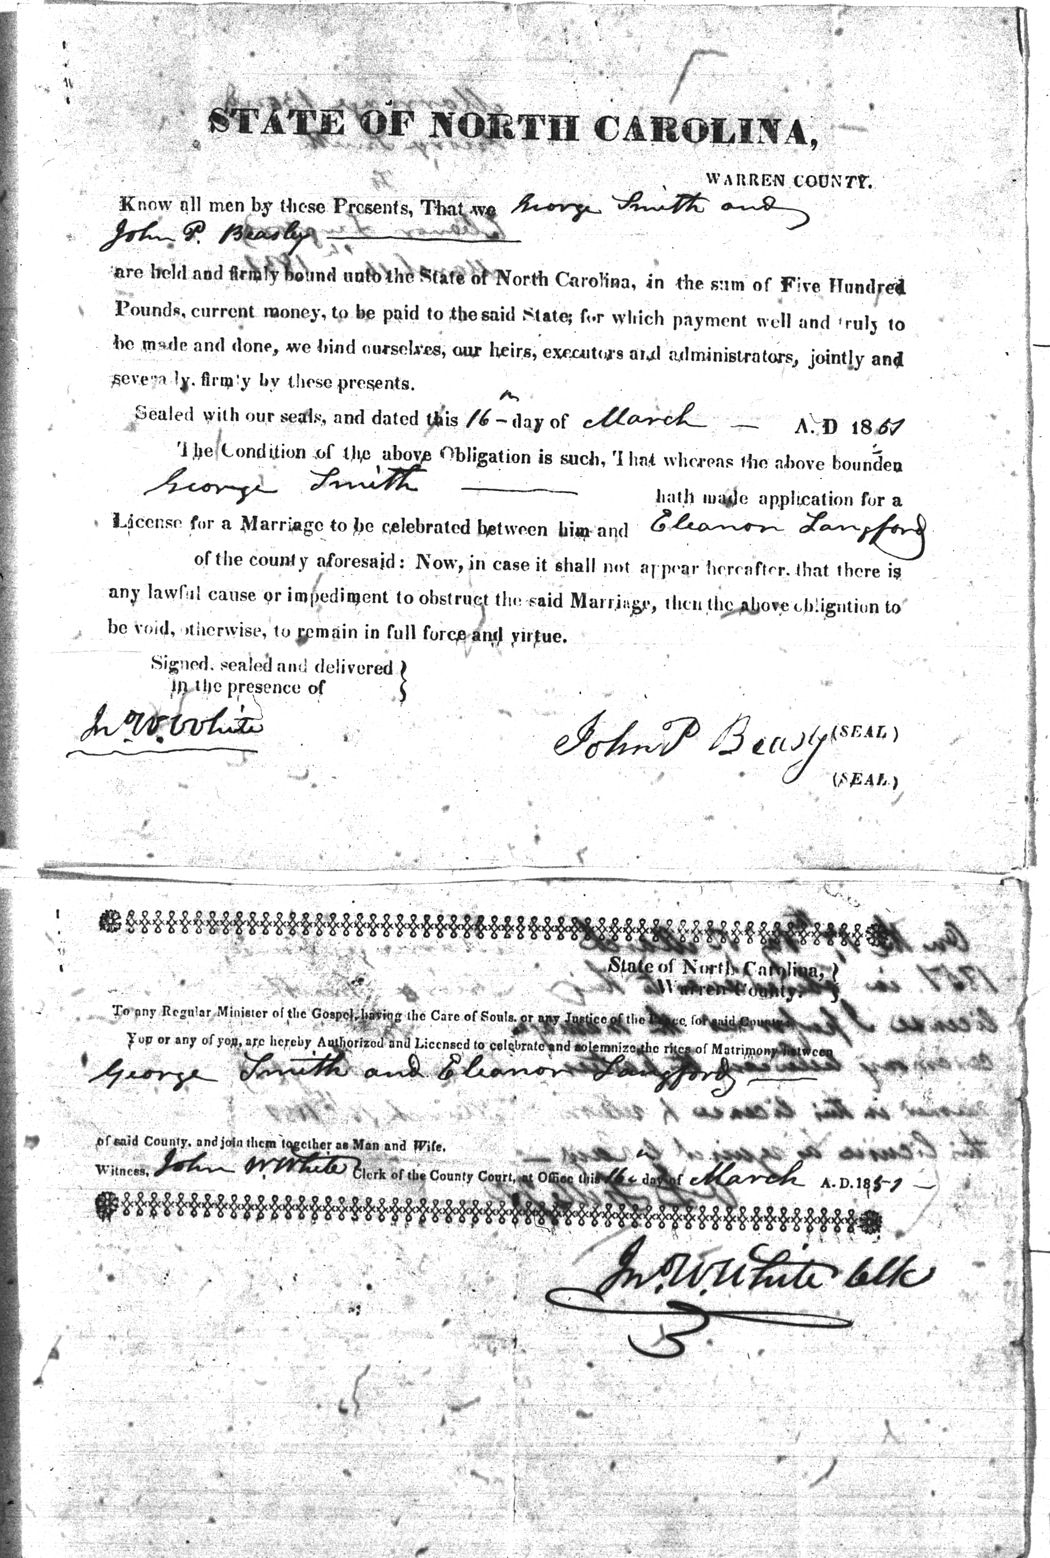 STATE OF NORTH CAROLINA,
WARREN COUNTY.
Know all men by these Presents, That we George Smith and
John P. Beasly
are held and firmly bound unto the State of North Carolina, in the sum of Five Hundred
Pounds, current money, to be paid to the said State; for which payment well and truly to
be made and done, we bind ourselves, our heirs, executors and administrators, jointly and
severally, firmly by these presents.
Sealed with our seals, and dated this 16th day of March — A. D 1851
The Condition of the above Obligation is such, That whereas the above bounden
George Smith — hath made application for a
License for a Marriage to be celebrated between him and Eleanor Langford
of the county aforesaid: Now, in case it shall not appear hereafter, that there is
any lawful cause or impediment to obstruct the said Marriage, then the above obligation to
be void, otherwise, to remain in full force and virtue.
Signed, sealed and delivered
in the presence of
Jn. W. White
John P Beasly (SEAL)
(SEAL)
State of North Carolina,
Warren County.
To any Regular Minister of the Gospel, having the Care of Souls, or any Justice of the Peace, for said County
You or any of you, are hereby Authorized and Licensed to celebrate and solemnize the rites of Matrimony between
George Smith and Eleanor Langford —
of said County, and join them together as Man and Wife.
Witness, John W White Clerk of the County Court, at Office this 16 day of March A. D. 1851 —
Jn. W. White Clk